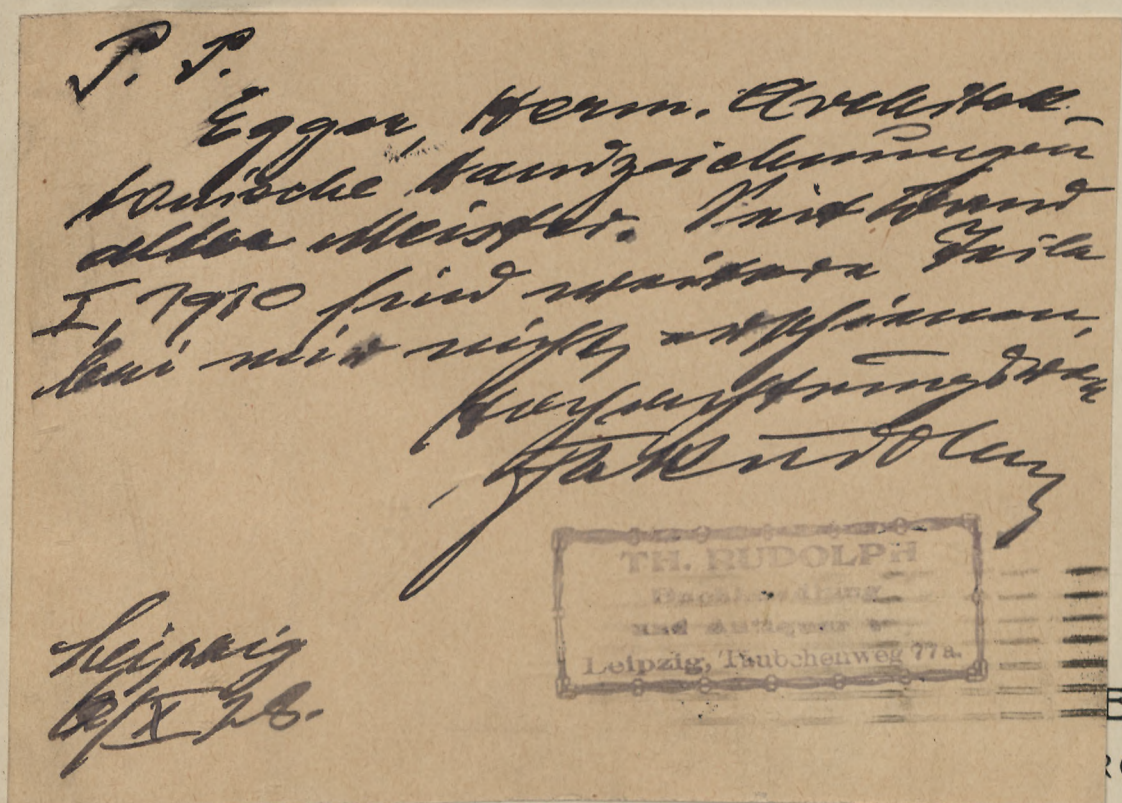 P. P.
Egger, Herm. Architek-
tonische Handzeichnungen
alter Meister. Seit Band
I, 1910 sind weitere Teile
bei mir nicht erschienen,
Hochachtungsvoll
Th Rudolph
TH. RUDOLPH
Buchhandlung
und Antiquariat
Leipzig, Täubchenweg 77a.
Leipzig
6/X 28.